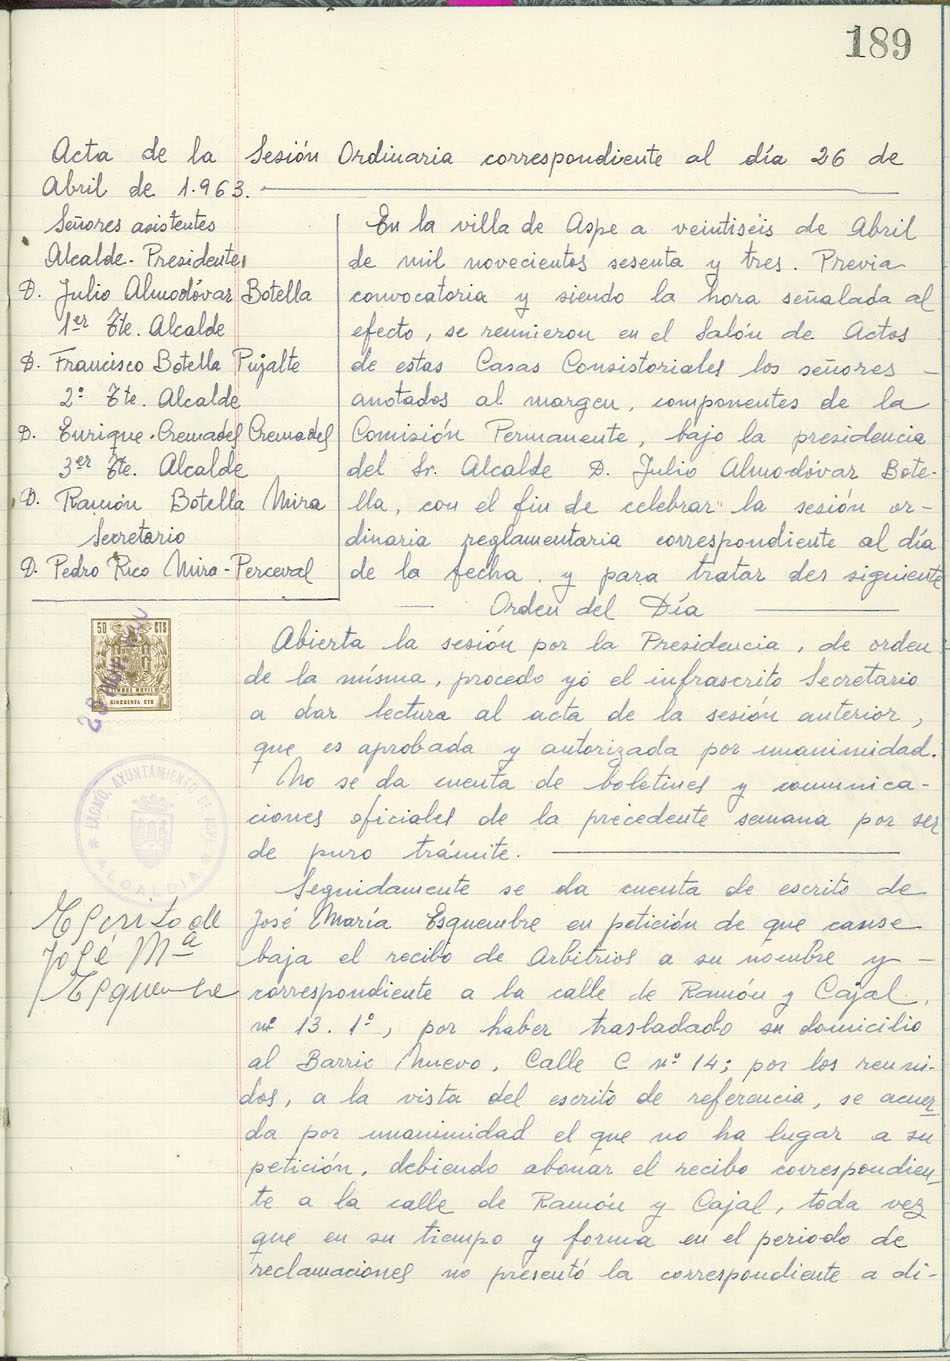 189
Acta de la Sesión Ordinaria correspondiente al día 26 de
Abril de 1.963.
Señores asistentes
Alcalde-Presidente
D. Julio Almodóvar Botella
1er Tte. Alcalde
D. Francisco Botella Pujalte
2º Tte. Alcalde
D. Enrique Cremades Cremades
3er Tte. Alcalde
D. Ramón Botella Mira
Secretario
D. Pedro Rico Mira-Perceval
En la villa de Aspe a veintiseis de Abril
de mil novecientos sesenta y tres. Previa
convocatoria y siendo la hora señalada al
efecto, se reunieron en el Salón de Actos
de estas Casas Consistoriales los señores -
anotados al margen, componentes de la
Comisión Permanente, bajo la presidencia
del Sr. Alcalde D. Julio Almodóvar Bote-
lla, con el fin de celebrar la sesión or-
dinaria reglamentaria correspondiente al día
de la fecha, y para tratar des siguiente
Orden del Día
50 CTS
CINCUENTA CTS
Abierta la sesión por la Presidencia, de orden
de la misma, procedo yó el infrascrito Secretario
a dar lectura al acta de la sesión anterior,
que es aprobada y autorizada por unanimidad.
No se da cuenta de boletines y comunica-
ciones oficiales de la precedente semana por ser
de puro trámite.
EXCMO. AYUNTAMIENTO DE ASPE
ALCALDIA
Escrito de
José Mª
Esquembre
Seguidamente se da cuenta de escrito de
José María Esquembre en petición de que cause
baja el recibo de Arbitrios a su nombre y -
correspondiente a la calle de Ramón y Cajal,
nº 13. 1º, por haber trasladado su domicilio
al Barrio Nuevo, Calle C nº 14; por los reuni-
dos, a la vista del escrito de referencia, se acuer
da por unanimidad el que no ha lugar a su
petición, debiendo abonar el recibo correspondien
te a la calle de Ramón y Cajal, toda vez
que en su tiempo y forma en el periodo de
reclamaciones no presentó la correspondiente a di-